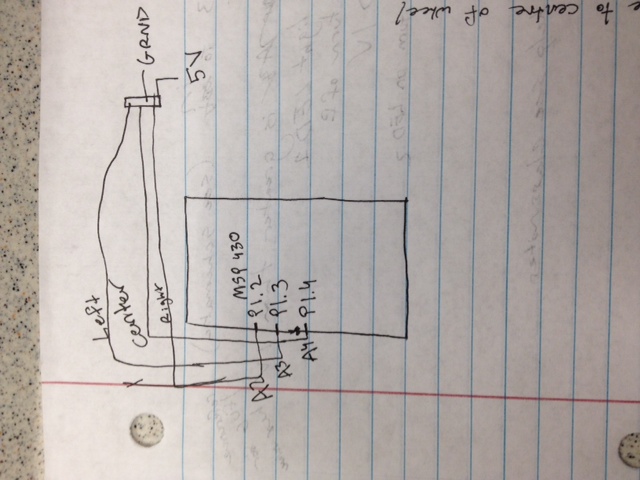 Left
Center
Right
GRND
5V
MSP 430
A2 P1.2
A3 P1.3
A4 P1.4
to centre of wheel